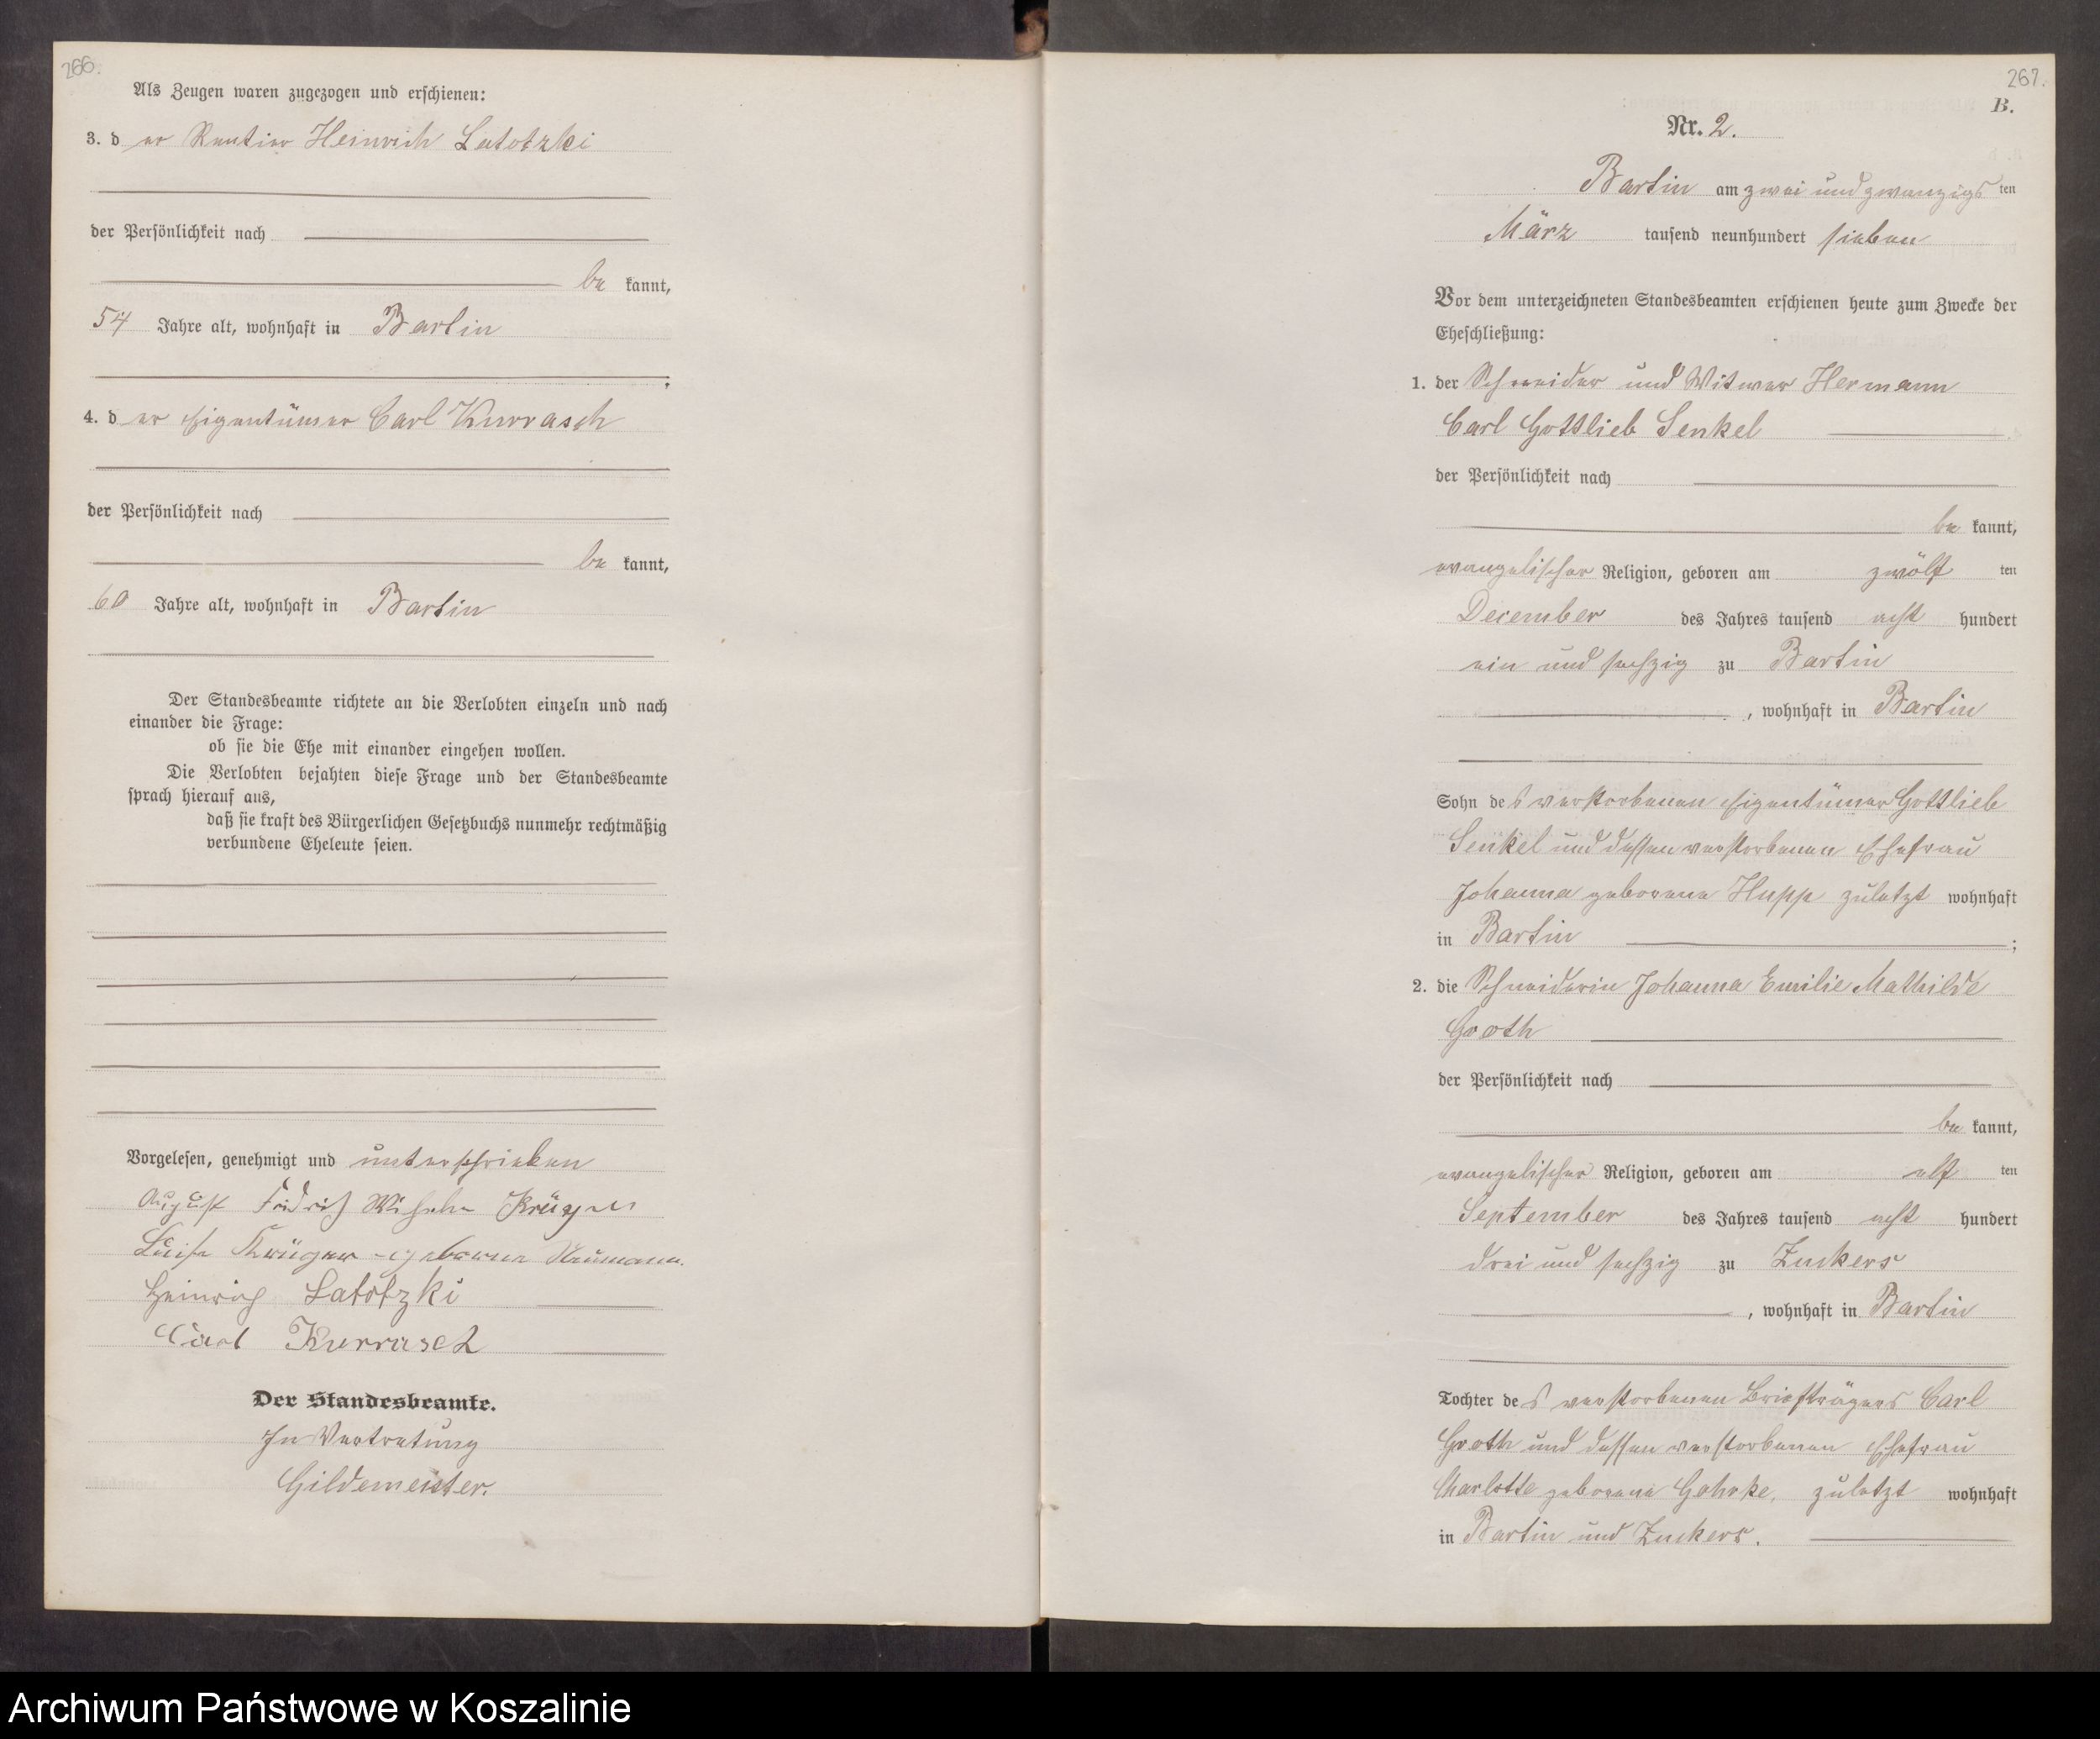 266.
Als Zeugen waren zugezogen und erschienen:
3. der Rentier Heinrich Latotzki
der Persönlichkeit nach
be kannt,
54 Jahre alt, wohnhaft in Bartin
;
4. der Eigentümer Carl Kurrasch
der Persönlichkeit nach
be kannt,
60 Jahre alt, wohnhaft in Bartin
Der Standesbeamte richtete an die Verlobten einzeln und nach
einander die Frage:
ob sie die Ehe mit einander eingehen wollen.
Die Verlobten bejahten diese Frage und der Standesbeamte
sprach hierauf aus,
daß sie kraft des Bürgerlichen Gesetzbuchs nunmehr rechtmäßig
verbundene Eheleute seien.
Vorgelesen, genehmigt und unterschrieben
August Fridrich Wilhelm Krüger
Luise Krüger geborene Naumann.
Heinrich Latotzki
Carl Kurrasch
Der Standesbeamte.
In Vertretung
Gildemeister.
267.
B.
Nr. 2.
Bartin am zwei und zwanzigsten
März tausend neunhundert sieben
Vor dem unterzeichneten Standesbeamten erschienen heute zum Zwecke der
Eheschließung:
1. der Schneider und Witwer Hermann
Carl Gottlieb Senkel
der Persönlichkeit nach
be kannt,
evangelischer Religion, geboren am zwölf ten
December des Jahres tausend acht hundert
ein und sechzig zu Bartin
, wohnhaft in Bartin
Sohn des verstorbenen Eigentümer Gottlieb
Senkel und dessen verstorbenen Ehefrau
Johanna geborene Hupp zuletzt wohnhaft
in Bartin ;
2. die Schneiderin Johanna Emilie Mathilde
Groth
der Persönlichkeit nach
be kannt,
evangelischer Religion, geboren am elf ten
September des Jahres tausend acht hundert
drei und sechzig zu Zuckers
, wohnhaft in Bartin
Tochter des verstorbenen Briefträgers Carl
Groth und dessen verstorbenen Ehefrau
Charlotte geborene Gehrke, zuletzt wohnhaft
in Bartin und Zuckers.
Archiwum Państwowe w Koszalinie